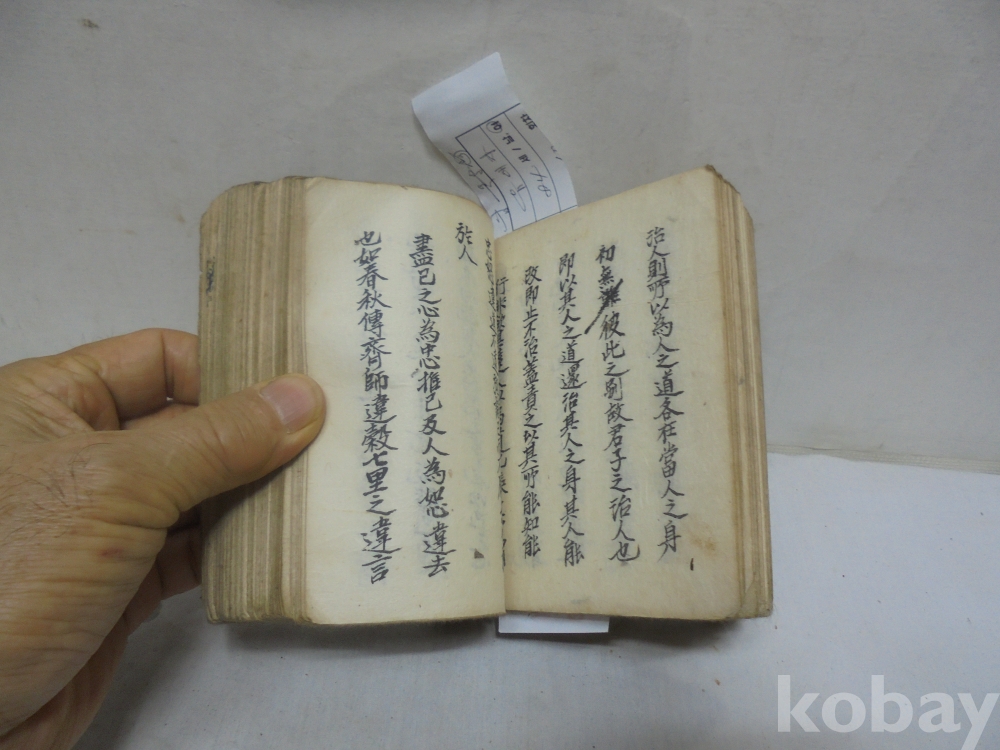 治人則所以為人之道各在當人之身
初無彼此之別故君子之治人也
即以其人之道還治其人之身其人能
改即止不治蓋責之以其所能知能
於人
盡己之心為忠推己及人為恕違去
也如春秋傳齊師違穀七里之違言
kobay